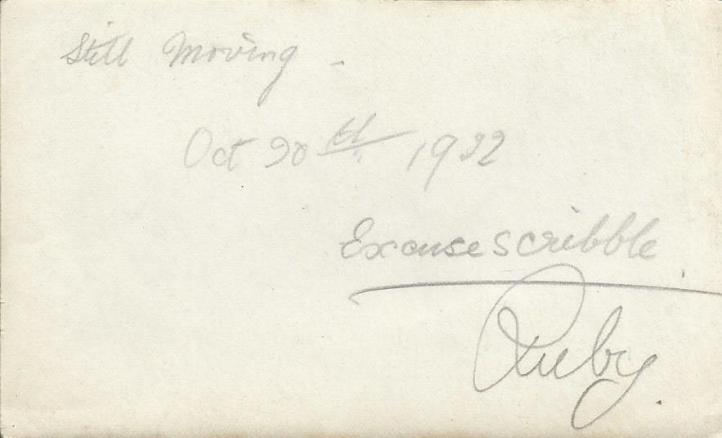 Still Moving -
Oct 20th 1922
Excuse scribble
Ruby.